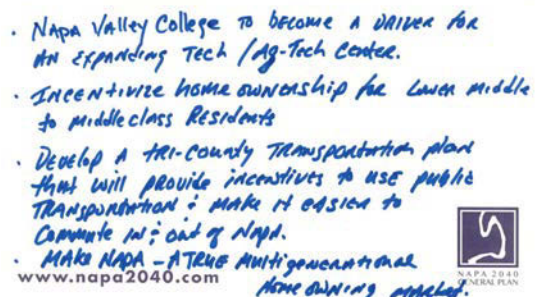 · NAPA Valley College to become a driver for
an expanding Tech / Ag-Tech Center.
· Incentivize home ownership for lower middle
to middle class Residents
· Develop a tri-county Transportation plan
that will provide incentives to use public
Transportation & make it easier to
Commute in & out of Napa.
· Make NAPA - A TRUE Multigenerational
www.napa2040.com
home owning market.
NAPA 2040
GENERAL PLAN